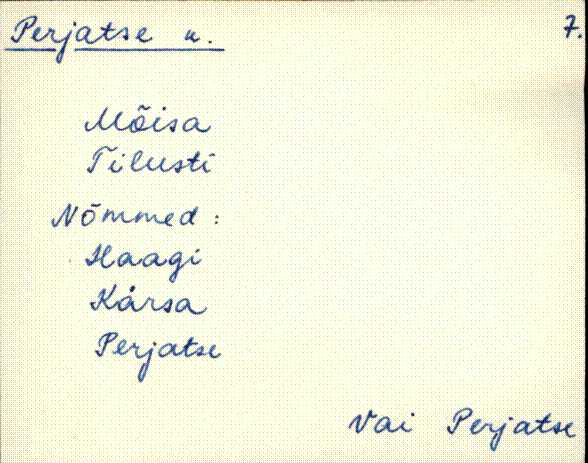 Perjatse k. 7.
Mõisa
Tilusti
Nõmmed:
Haagi
Kårsa
Perjatse
Vai Perjatse